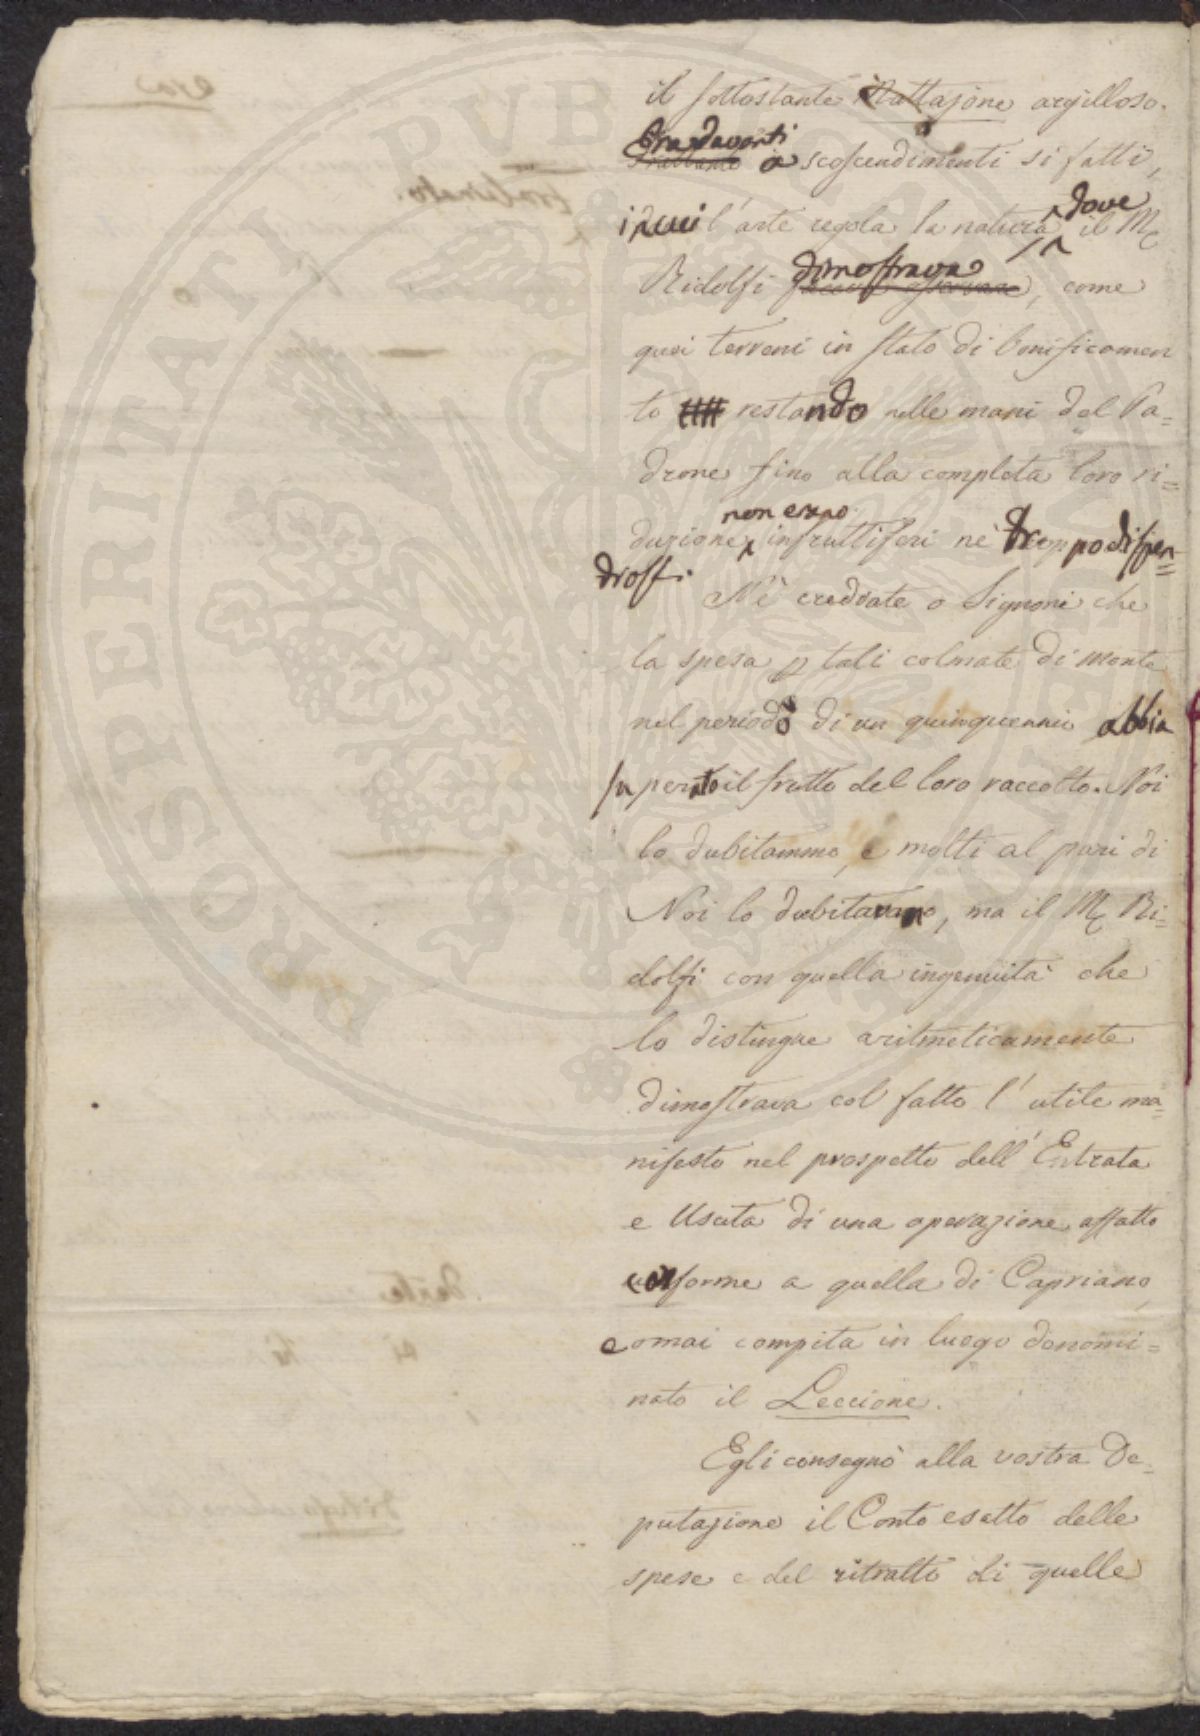 il sottostante Mattajone argilloso.
Era davanti
Trattante a scoscendimenti sì fatti,
in cui l'arte regola la natura, dove il Mse
Ridolfi dimostrava, come
quei terreni in stato di bonificamen
to restando nelle mani del Pa=
drone fino alla completa loro ri=
duzione non erano infruttiferi nè troppo dispen=
diosi.
Nè crediate o Signori che
la spesa p tali colmate di monte
nel periodo di un quinquennio abbia
superato il frutto del loro raccolto. Noi
lo dubitammo, e molti al pari di
Noi lo dubitavano, ma il Mse Ri=
dolfi con quella ingenuità che
lo distingue aritmeticamente
dimostrava col fatto l'utile ma=
nifesto nel prospetto dell'Entrata
e Uscita di una operazione affatto
conforme a quella di Capriano,
e omai compita in luogo denomi=
nato il Leccione.
Egli consegnò alla vostra De=
putazione il Conto esatto delle
spese e del ritratto di quelle
PROSPERITATI PVBLICAE